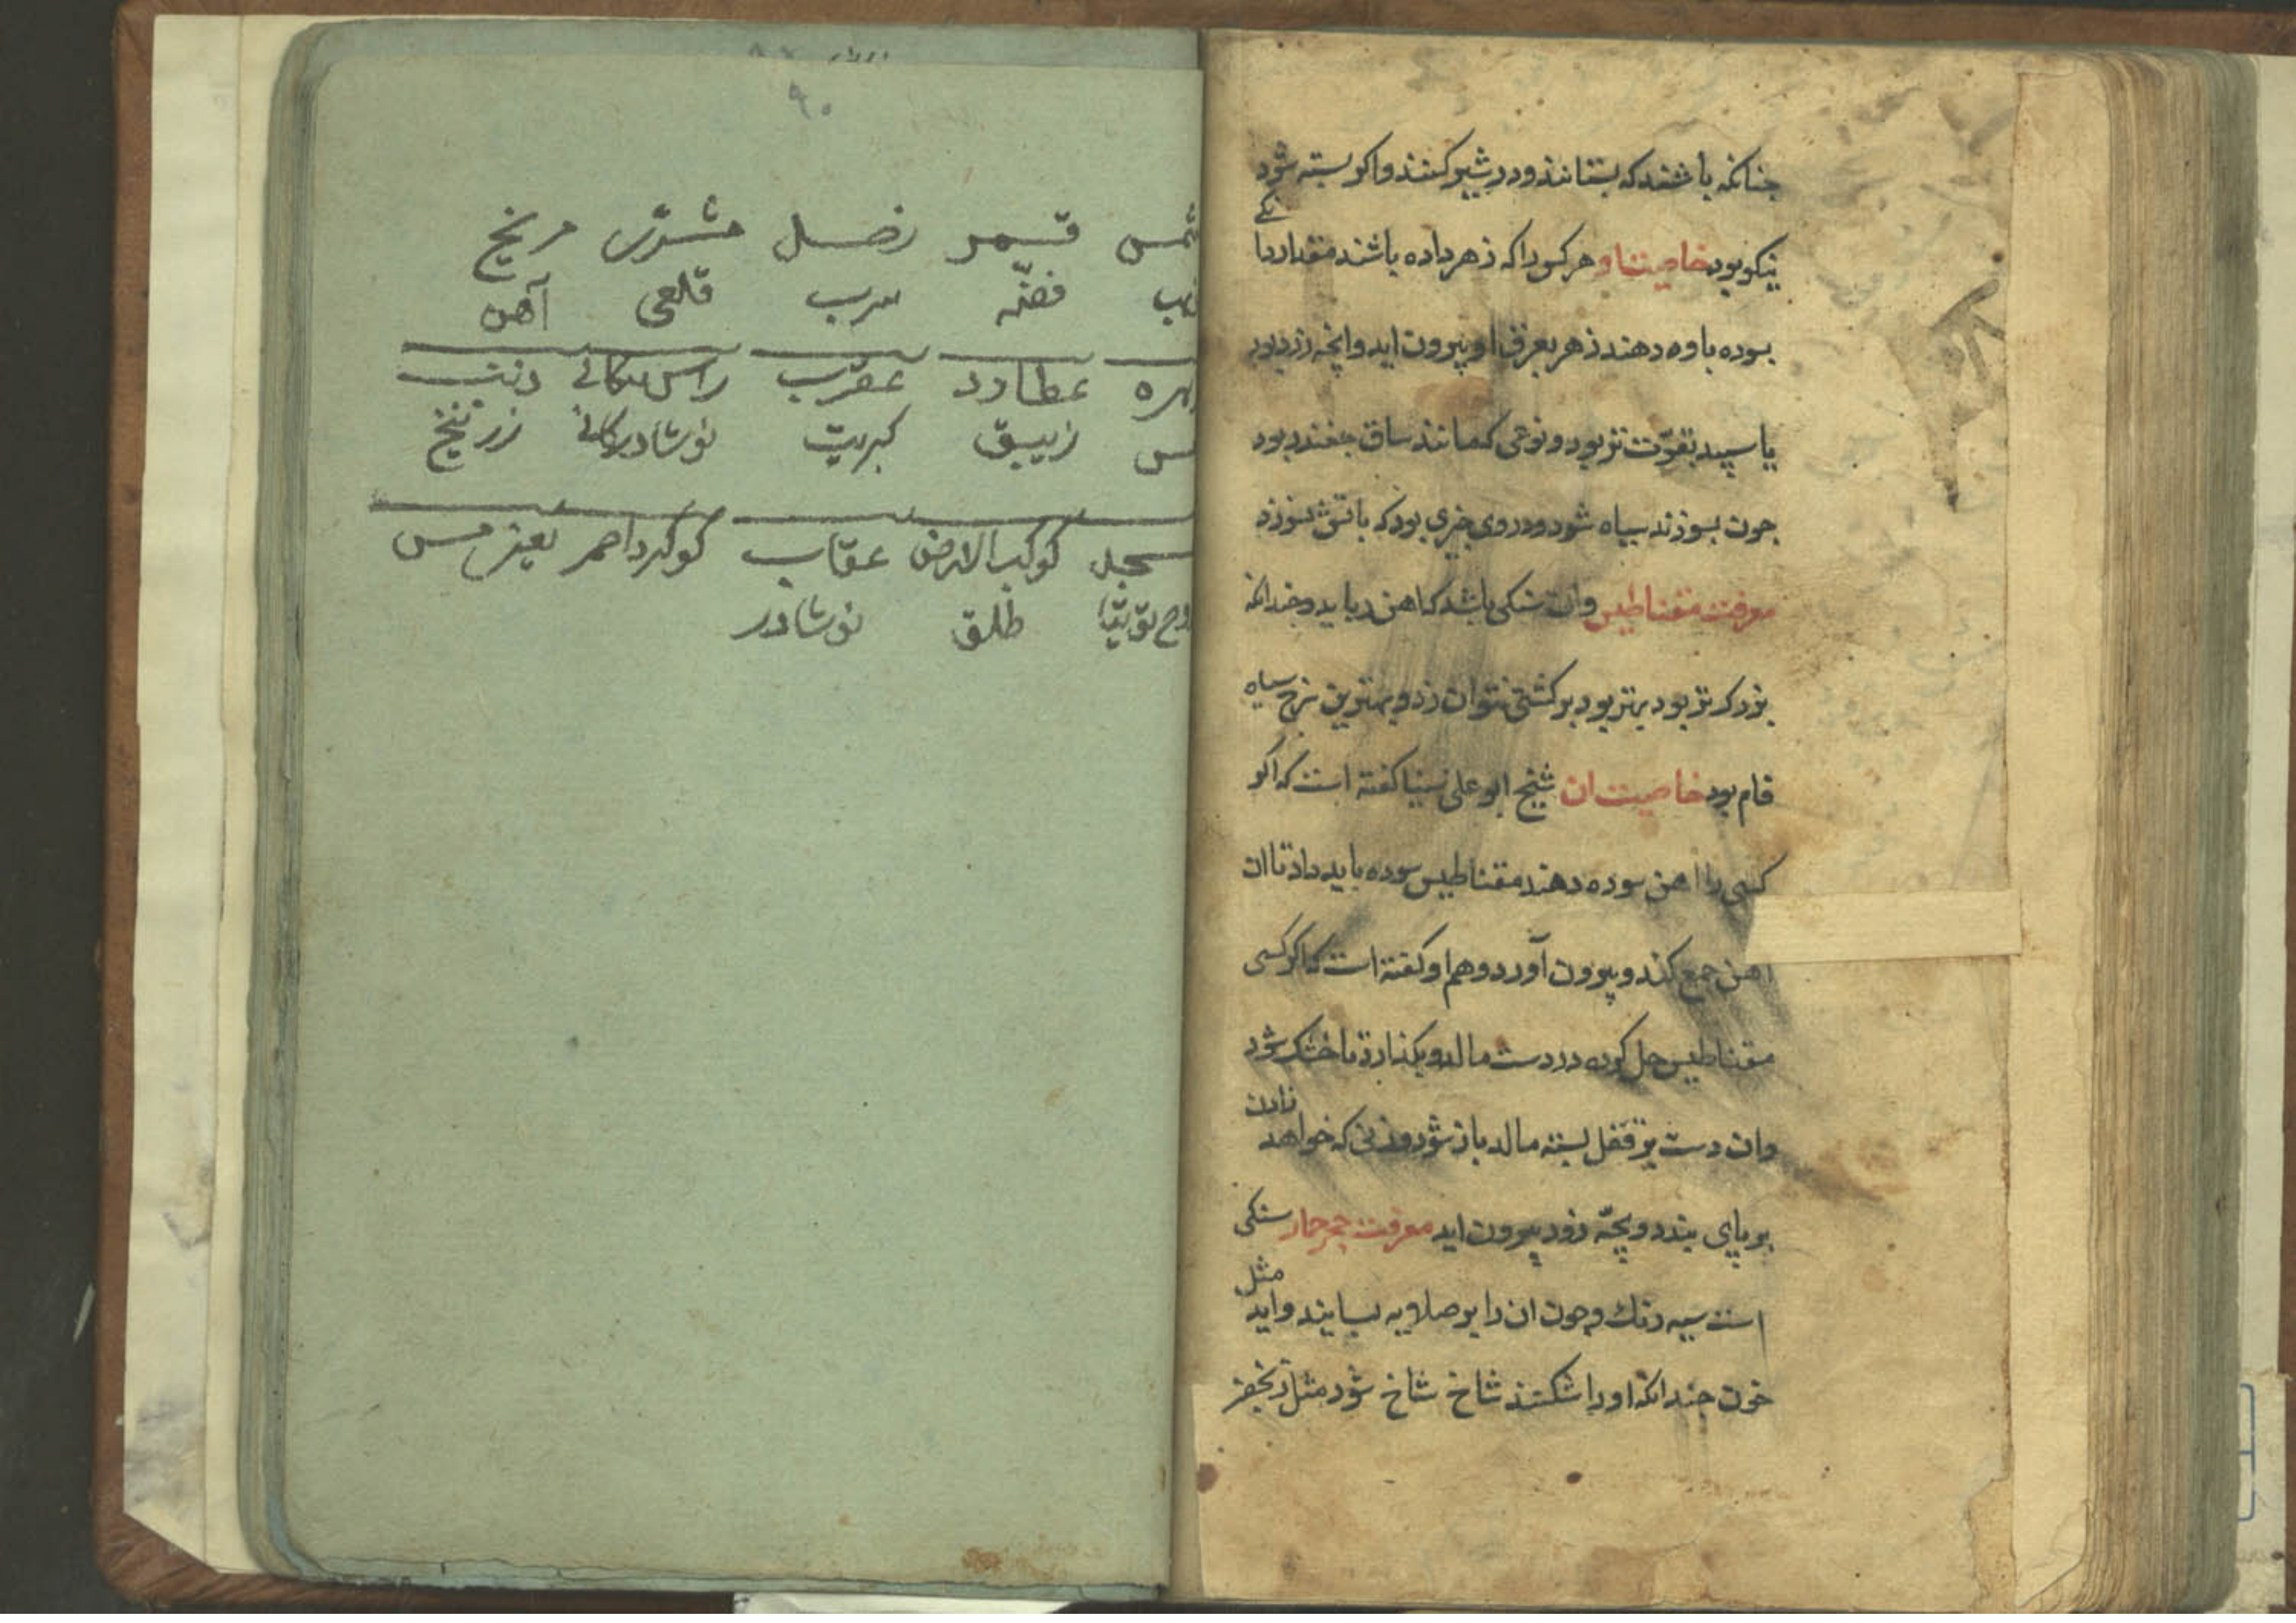 جنانكه باشند كه بستانند و در شیر كنند و اكر بسته شود
نیكو بود خاصیت او هر كس را كه زهر داده باشند مقدار دا
نكی
سوده باو دهند زهر بعرق او بیرون اید و انچه زرد بود
یا سپید بقوت تر بود و نوعی كه مانند ساق جغندر بود
جون بسوزند سیاه شود و در وی جیزی بود كه باتش نسوزد
معرفت مقناطیس وان سنكی باشد كه اهن رباید و جندانكه
بزركتر بود بهتر بود بر كشتی نتوان زد و بهترین سیاه
فام بود خاصیت ان شیخ ابو علی سینا كفته است كه اكر
كسی را اهن سوده دهند مقناطیس سوده باید داد تا ان
اهن جمع كند و بیرون آورد و هم او كفته است كه اكر كسی
مقناطیس حل كرده در دست مالد و بكذارد تا خشك شود
وان دست بر قفل بسته مالد باز شود و زنی كه خواهد
زادن
بر پای بندد و بچّه زود بیرون اید معرفت حجر حمار سنكی
است سیه رنك و جون ان را بر صلایه بسایند و اید
مثل
خون جندانكه او را شكنند شاخ شاخ شود مثل زنجفر
۹۰
شمس قمر زحل مشتری مریخ
فضّه سرب قلعی آهن
عطارد عقرب راس ذنب
زیبق كبریت نوشادر زرنیخ
كوكب الارض عقاب كوكرد احمر یعنی مس
توتیا طلق نوشادر